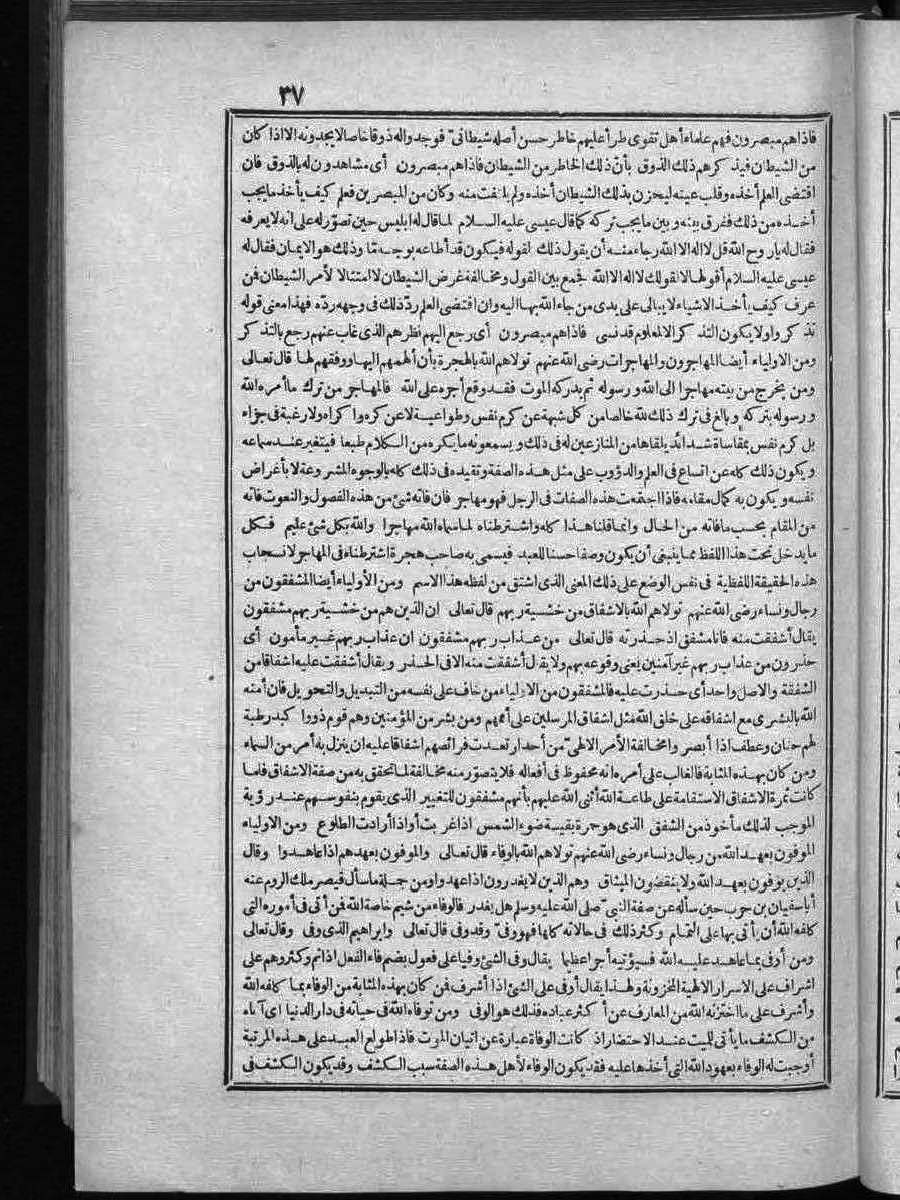 ٣٧
فاذاهم مبصرون فهم علماء أهل تقوى طرأ عليهم خاطر حسن أصله شيطانىّ فوجدوا له ذوقا خاصا لا يجدونه الا اذا كان
من الشيطان فيذكرهم ذلك الذوق بأنّ ذلك الخاطر من الشيطان فاذاهم مبصرون أى مشاهدون له بالذوق فان
اقتضى العلم أخذه وقلب عينه ليحزن بذلك الشيطان أخذه ولم يلتفت منه وكان من المبصرين فعلم كيف يأخذ ما يجب
أخذه من ذلك ففرق بينه وبين ما يجب تركه كما قال عيسى عليه السلام لما قال له ابليس حين تصوّر له على انه لا يعرفه
فقال له ياروح الله قل لا اله الا الله رجاء منه أن يقول ذلك لقوله فيكون قد أطاعه بوجه تما وذلك هو الايمان فقال له
عيسى عليه السلام أقولها لا لقولك لا اله الا الله فجمع بين القول ومخالفة غرض الشيطان لا امتثالا لأمر الشيطان فمن
عرف كيف يأخذ الاشياء لا يبالى على يدى من جاء الله بها اليه وان اقتضى العلم ردّ ذلك فى وجهه ردّه فهذا معنى قوله
تذكروا ولا يكون التذكر الا لمعلوم قد نسى فاذاهم مبصرون أى رجع اليهم نظرهم الذى غاب عنهم رجع بالتذكر
ومن الاولياء أيضا المهاجرون والمهاجرات رضى الله عنهم تولاهم الله بالهجرة بأن ألهمهم اليها ووفقهم لها قال تعالى
ومن يخرج من بيته مهاجرا الى الله ورسوله ثم يدركه الموت فقد وقع أجره على الله فالمهاجر من ترك ما أمره الله
ورسوله بتركه وبالغ فى ترك ذلك لله خالصا من كل شبهة عن كرم نفس وطواعية لا عن كره واكراه ولا رغبة فى جزاء
بل كرم نفس بمقاساة شدائد يلقاها من المنازعين له فى ذلك ويسمعونه ما يكره من الكلام طبعا فيتغير عند سماعه
ويكون ذلك كله عن اتساع فى العلم والدؤوب على مثل هذه الصفة وتقيده فى ذلك كله بالوجوه المشروعة لا بأغراض
نفسه ويكون به كمال مقامه فاذا اجتمعت هذه الصفات فى الرجل فهو مهاجر فان فاته شئ من هذه الفصول والنعوت فاته
من المقام بحسب ما فاته من الحال وانما قلنا هذا كله واشترطناه لما سماه الله مهاجرا والله بكل شئ عليم فكل
ما يدخل تحت هذا اللفظ مما ينبغى أن يكون وصفا حسنا للعبد فيسمى به صاحب هجرة اشترطناه فى المهاجر لانسحاب
هذه الحقيقة اللفظية فى نفس الوضع على ذلك المعنى الذى اشتق من لفظه هذا الاسم ومن الأولياء أيضا المشفقون من
رجال ونساء رضى الله عنهم تولاهم الله بالاشفاق من خشية ربهم قال تعالى ان الذين هم من خشية ربهم مشفقون
يقال أشفقت منه فانا مشفق اذ حذرته قال تعالى من عذاب ربهم مشفقون ان عذاب ربهم غير مأمون أى
حذرون من عذاب ربهم غير آمنين يعنى وقوعه بهم ولا يقال أشفقت منه الا فى الحذر ويقال أشفقت عليه اشفاقا من
الشفقة والاصل واحد أى حذرت عليه فالمشفقون من الاولياء من خاف على نفسه من التبديل والتحويل فان أمنه
الله بالبشرى مع اشفاقه على خلق الله مثل اشفاق المرسلين على أممهم ومن بشر من المؤمنين وهم قوم ذووا كبد رطبة
لهم حنان وعطف اذا أبصروا مخالفة الأمر الالهىّ من أحد ارتعدت فرائصهم اشفاقا عليه ان ينزل به أمر من السماء
ومن كان بهذه المثابة فالغالب على أمره انه محفوظ فى أفعاله فلا يتصوّر منه مخالفة لما تحقق به من صفة الاشفاق فلما
كانت ثمرة الاشفاق الاستقامة على طاعة الله أثنى الله عليهم بأنهم مشفقون للتغيير الذى يقوم بنفوسهم عند رؤية
الموجب لذلك مأخوذ من الشفق الذى هو حمرة بقيسة ضوء الشمس اذا غربت أو اذا أرادت الطلوع ومن الاولياء
الموفون بعهد الله من رجال ونساء رضى الله عنهم تولاهم الله بالوفاء قال تعالى والموفون بعهدهم اذا عاهدوا وقال
الذين يوفون بعهد الله ولا ينقضون الميثاق وهم الذين لا يغدرون اذا عهدوا ومن جملة ما سأل قيصر ملك الروم عنه
أبا سفيان بن حرب حين سأله عن صفة النبىّ صلى الله عليه وسلم هل يغدر فالوفاء من شيم خاصة الله فمن أتى فى أموره التى
كلفه الله أن يأتى بها على التمام وكثر ذلك فى حالاته كلها فهو وفىّ وقد وفى قال تعالى وابراهيم الذى وفى وقال تعالى
ومن أوفى بما عاهد عليه الله فسيؤتيه أجرا عظيما يقال وفى الشئ وفيا على فعول بضم فاء الفعل اذا تم وكثر وهم على
اشراف على الاسرار الالهية المخزونة ولهذا يقال أوفى على الشئ اذا أشرف فمن كان بهذه المثابة من الوفاء بما كلفه الله
وأشرف على ما اختزنه الله من المعارف عن أكثر عباده فذلك هو الوفى ومن توفاه الله فى حياته فى دار الدنيا أى آتاه
من الكشف ما يأتى للميت عند الاحتضار اذ كانت الوفاة عبارة عن اتيان الموت فاذا طولع العبد على هذه المرتبة
أوجبت له الوفاء بعهود الله التى أخذها عليه فقد يكون الوفاء لأهل هذه الصفة سبب الكشف وقد يكون الكشف فى